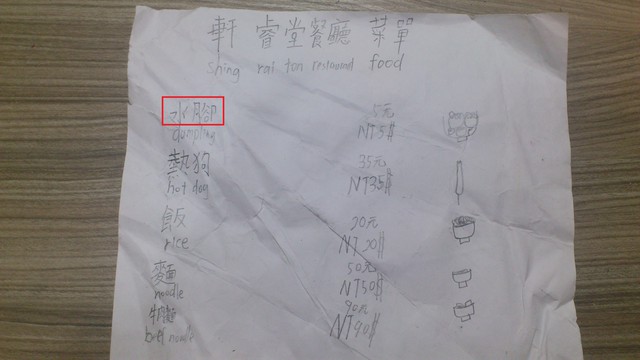 軒睿堂餐廳 菜單
shing rai ton food
水腳 5元
NT5$
熱狗 35元
hot dog NT35$
飯 20元
rice NT20$
麵 50元
noodle NT50$
牛肉麵 90元
beef noodle NT90$